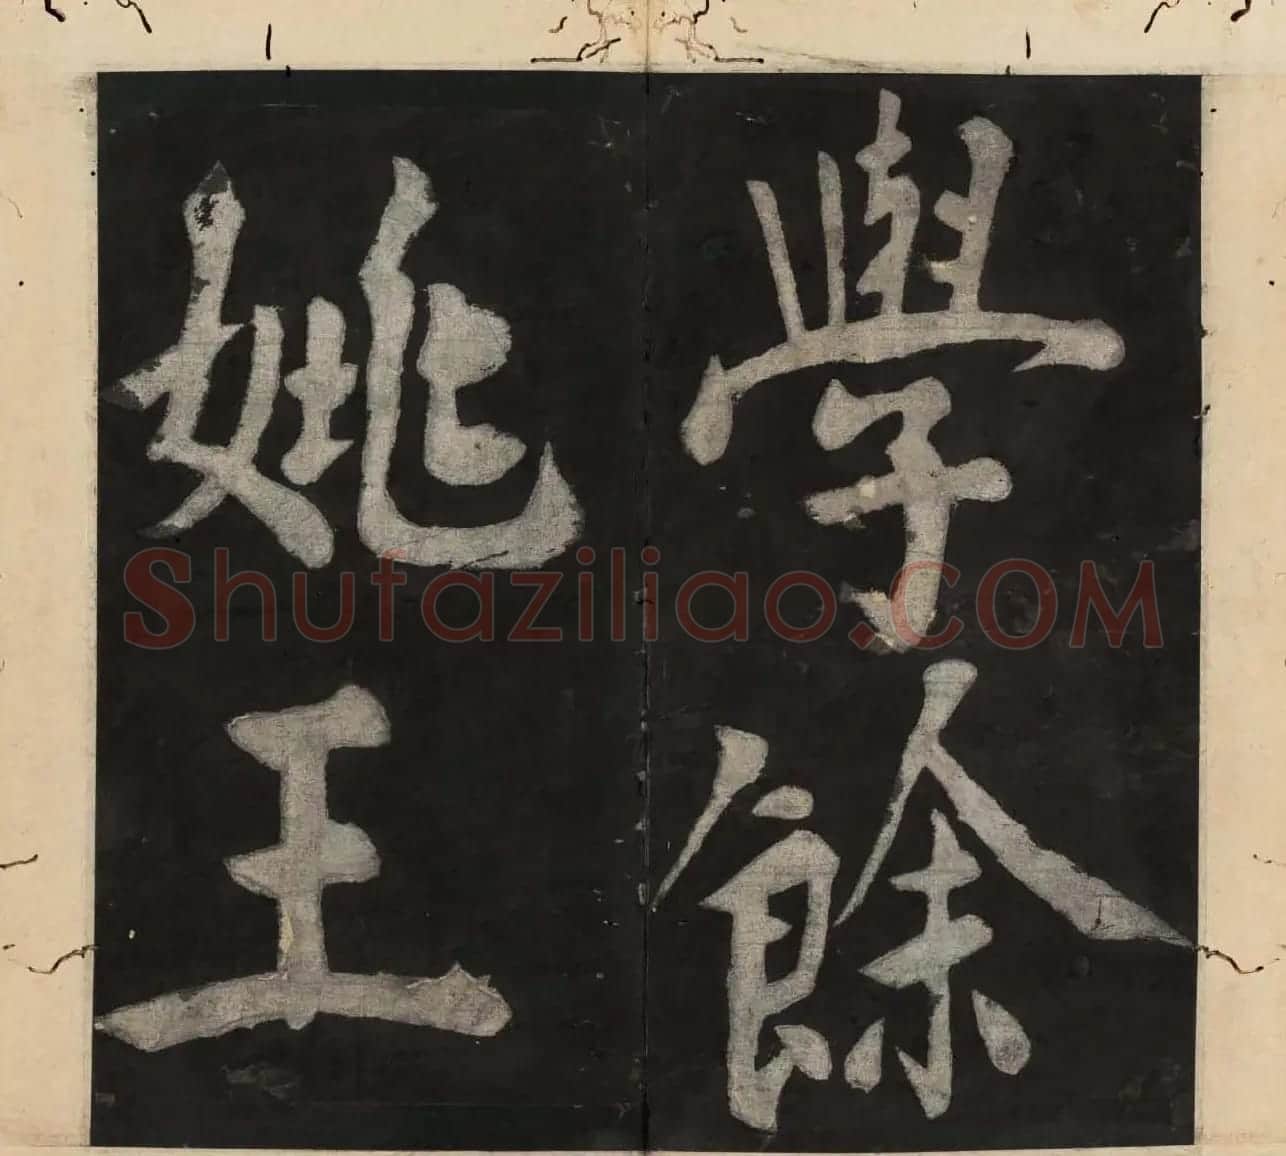 學餘
姚王
Shufaziliao.COM